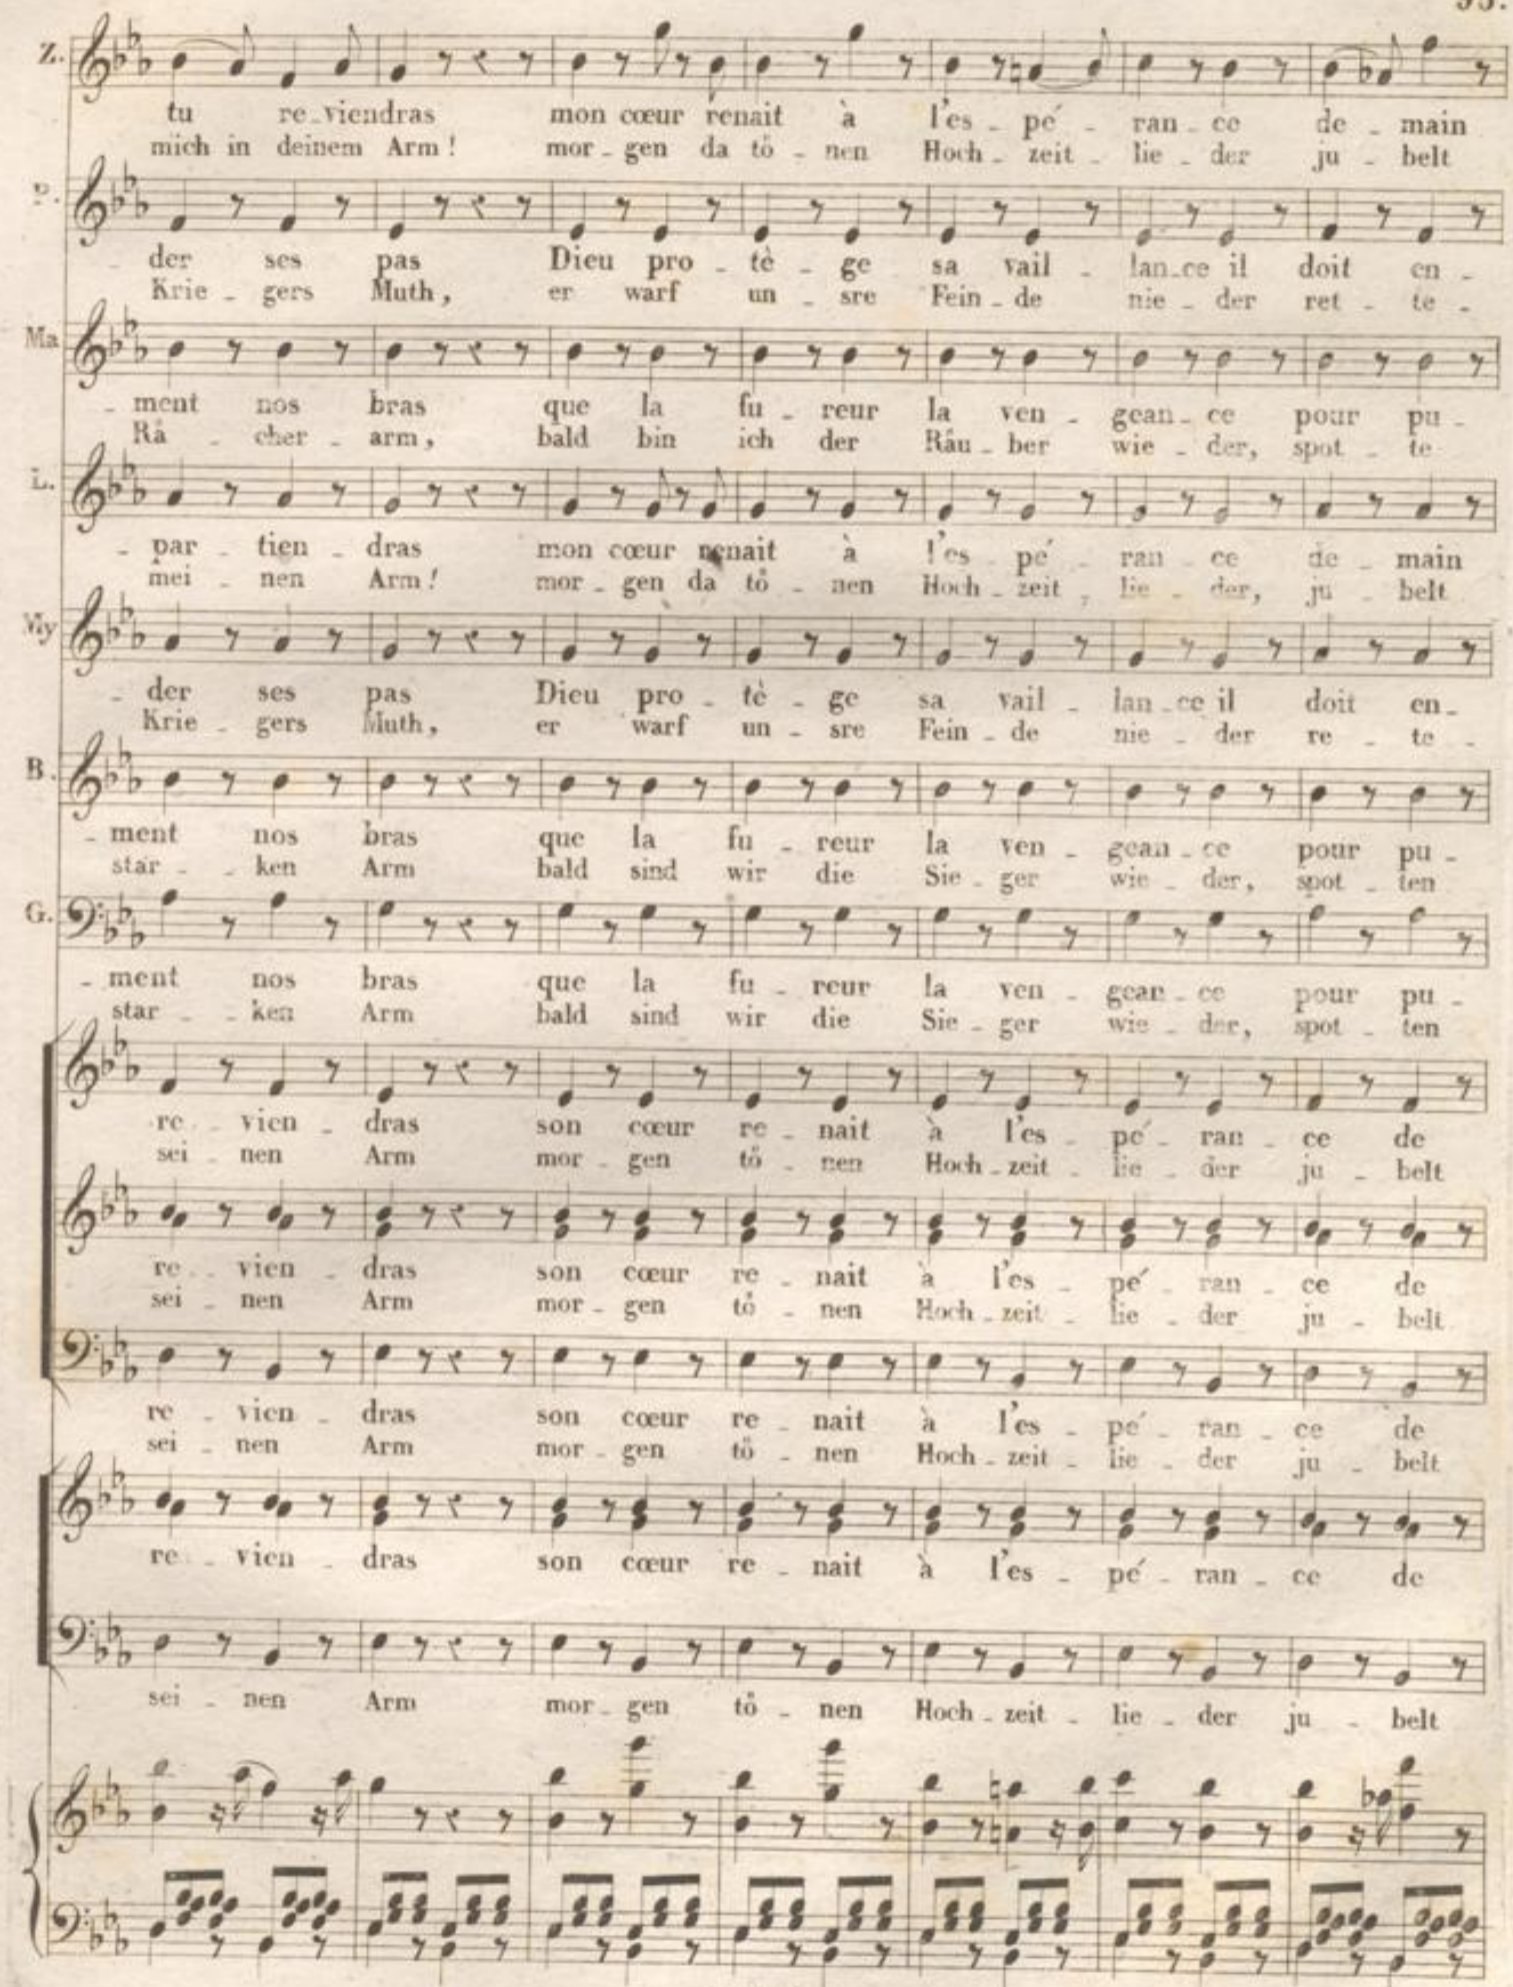 95.
Z.
tu re_viendras mon cœur renait à l'es _ pé _ ran _ ce de _ main
mich in deinem Arm! mor _ gen da tö _ nen Hoch _ zeit _ lie _ der ju _ belt
P.
_ der ses pas Dieu pro _ tè _ ge sa vail _ lan_ce il doit en _
Krie _ gers Muth, er warf un _ sre Fein _ de nie _ der ret _ te _
Ma
_ ment nos bras que la fu _ reur la ven _ gean _ ce pour pu _
Rä _ cher _ arm, bald bin ich der Räu _ ber wie _ der, spot _ te
L.
_ par _ tien _ dras mon cœur renait à l'es _ pé _ ran _ ce de _ main
mei _ nen Arm! mor _ gen da tö _ nen Hoch _ zeit _ lie _ der, ju _ belt
My
_ der ses pas Dieu pro _ tè _ ge sa vail _ lan _ ce il doit en _
Krie _ gers Muth, er warf un _ sre Fein _ de nie _ der re _ te _
B.
_ ment nos bras que la fu _ reur la ven _ gean _ ce pour pu _
star _ ken Arm bald sind wir die Sie _ ger wie _ der, spot _ ten
G.
_ ment nos bras que la fu _ reur la ven _ gean _ ce pour pu _
star _ ken Arm bald sind wir die Sie _ ger wie _ der, spot _ ten
re _ vien _ dras son cœur re _ nait à l'es _ pé _ ran _ ce de
sei _ nen Arm mor _ gen tö _ nen Hoch _ zeit _ lie _ der ju _ belt
re _ vien _ dras son cœur re _ nait à l'es _ pé _ ran _ ce de
sei _ nen Arm mor _ gen tö _ nen Hoch _ zeit _ lie _ der ju _ belt
re _ vien _ dras son cœur re _ nait à l'es _ pé _ ran _ ce de
sei _ nen Arm mor _ gen tö _ nen Hoch _ zeit _ lie _ der ju _ belt
re _ vien _ dras son cœur re _ nait à l'es _ pé _ ran _ ce de
sei _ nen Arm mor _ gen tö _ nen Hoch _ zeit _ lie _ der ju _ belt